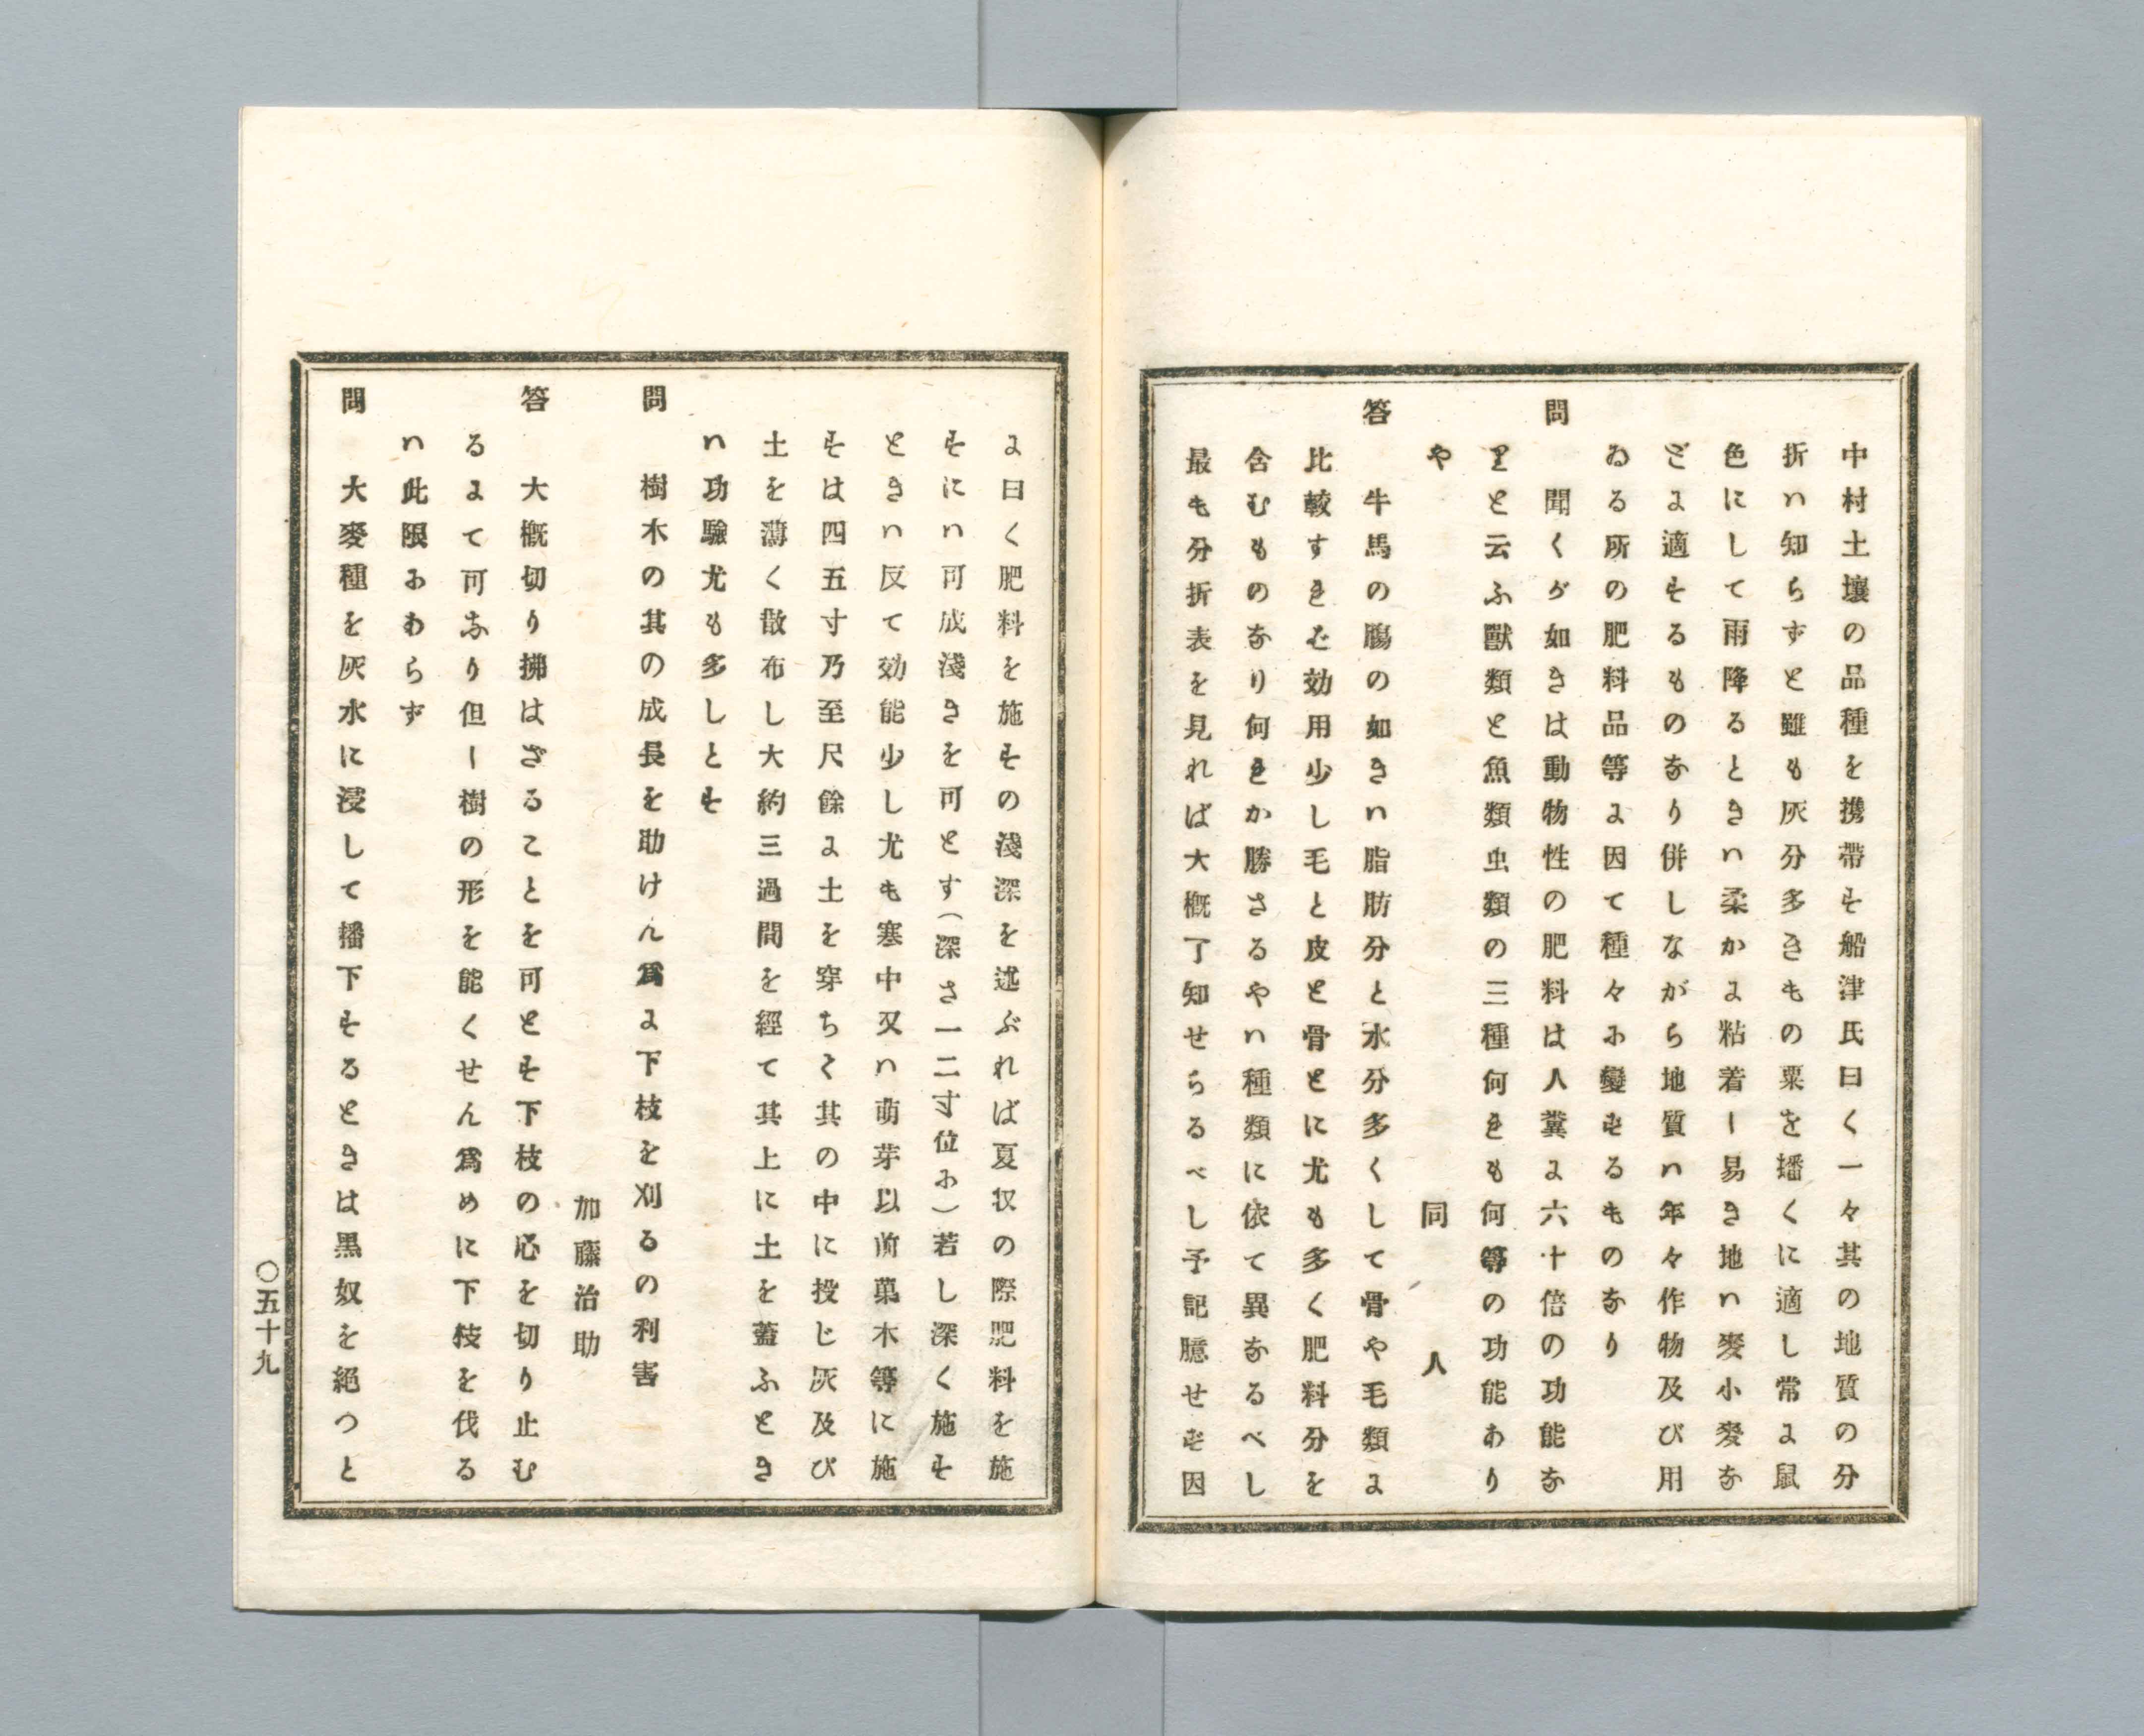 中村土壤の品種を携帶す船津氏曰く一々其の地質の分
折ハ知らずと雖も灰分多きもの粟を播くに適し常に鼠
色にして雨降るときハ柔かに粘着し易き地ハ麥小麥な
どに適するものなり併しながら地質ハ年々作物及び用
ゐる所の肥料品等に因て種々に變ずるものなり
問　聞くが如きは動物性の肥料は人糞に六十倍の功能な
りと云ふ獸類と魚類虫類の三種何れも何等の功能あり
や　同　人
答　牛馬の膓の如きハ脂肪分と水分多くして骨や毛類に
比較すれば効用少し毛と皮と骨とに尤も多く肥料分を
含むものなり何れか勝さるやハ種類に依て異なるべし
最も分折表を見れば大概了知せらるべし予記臆せず因
に曰く肥料を施すの淺深を述ぶれば夏収の際肥料を施
すにハ可成淺きを可とす（深さ一二寸位に）若し深く施す
ときハ反て効能少し尤も寒中又ハ萌芽以前菓木等に施
すは四五寸乃至尺餘に土を穿ちく其の中に投じ灰及び
土を薄く散布し大約三過間を經て其上に土を蓋ふとき
ハ功驗尤も多しとす
問　樹木の其の成長を助けん爲に下枝を刈るの利害
加藤治助
答　大概切り拂はざることを可とす下枝の心を切り止む
るにて可なり但し樹の形を能くせん爲めに下枝を伐る
ハ此限にあらず
問　大麥種を灰水に浸して播下するときは黒奴を絕つと
〇五十九